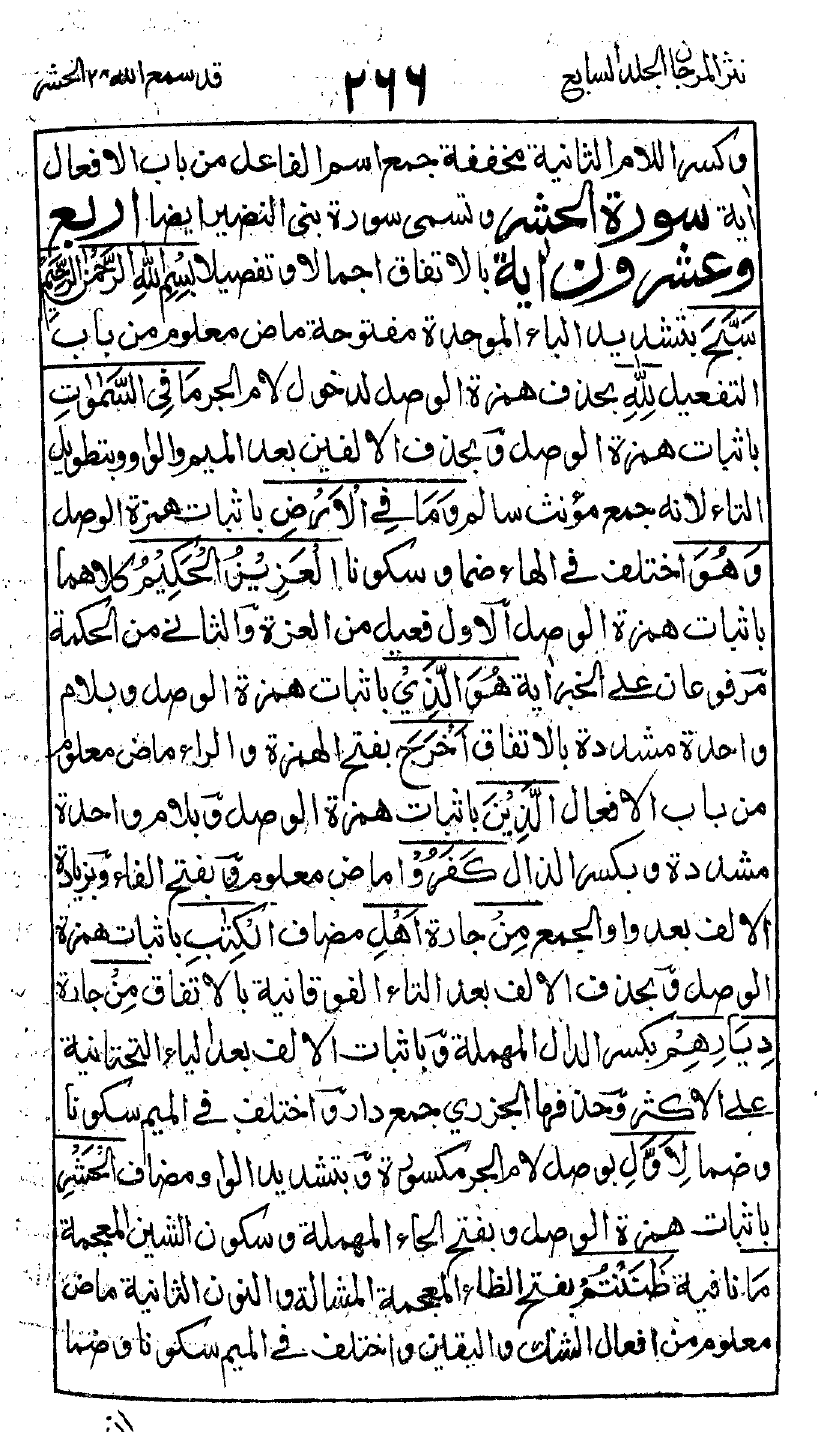 نثر المرجان الجلد السابع ٢٦٦ قد سمع الله ٢٨ الحشر
وكسر اللام الثانية مخففة جمع اسم الفاعل من باب الافعال
اٰية سورة الحشر وتسمى سورة بنى النضير ايضا اربع
وعشرون اٰية بالاتفاق اجمالا وتفصيلا بِسْمِ اللهِ الرَّحْمٰنِ الرَّحِيْمِ
سَبَّحَ بتشديد الباء الموحدة مفتوحة ماض معلوم من باب
التفعيل لِلّٰهِ بحذف همزة الوصل لدخول لام الجر مَا فِى السَّمٰوٰتِ
باثبات همزة الوصل وّبحذف الالفين بعد الميم والواو وبتطويل
التاء لانه جمع مؤنث سالم وَمَا فِى الْاَرْضِ باثبات همزة الوصل
وَهُوَ اختلف فى الهاء ضما وسكونا الْعَزِيْزُ الْحَكِيْمُ كلاهما
باثبات همزة الوصل الاول فعيل من العزة والثانى من الحكمة
مرفوعان على الخبر اٰية هُوَ الَّذِيْ باثبات همزة الوصل وبلام
واحدة مشددة بالاتفاق اَخْرَجَ بفتح الهمزة والراء ماض معلوم
من باب الافعال الَّذِيْنَ باثبات همزة الوصل وّبلام واحدة
مشددة وبكسر الذال كَفَرُوْا ماض معلوم وّبفتح الفاء وّبزيادة
الالف بعد واو الجمع مِنْ جارة اَهْلِ مضاف الْكِتٰبِ باثبات همزة
الوصل وّبحذف الالف بعد التاء الفوقانية بالاتفاق مِنْ جارة
دِيَارِهِمْ بكسر الدال المهملة وّباثبات الالف بعد الياء التحتانية
على الاكثر وّحذفها الجزري جمع دار وّاختلف فى الميم سكونا
وضما لِاَوَّلِ بوصل لام الجر مكسورة وّبتشديد الواو مضاف الْحَشْرِ
باثبات همزة الوصل وبفتح الحاء المهملة وسكون الشين المعجمة
مَا نافية ظَنَنْتُمْ بفتح الظاء المعجمة المشالة والنون الثانية ماض
معلوم من افعال الشك واليقين واختلف فى الميم سكونا وضما
ان